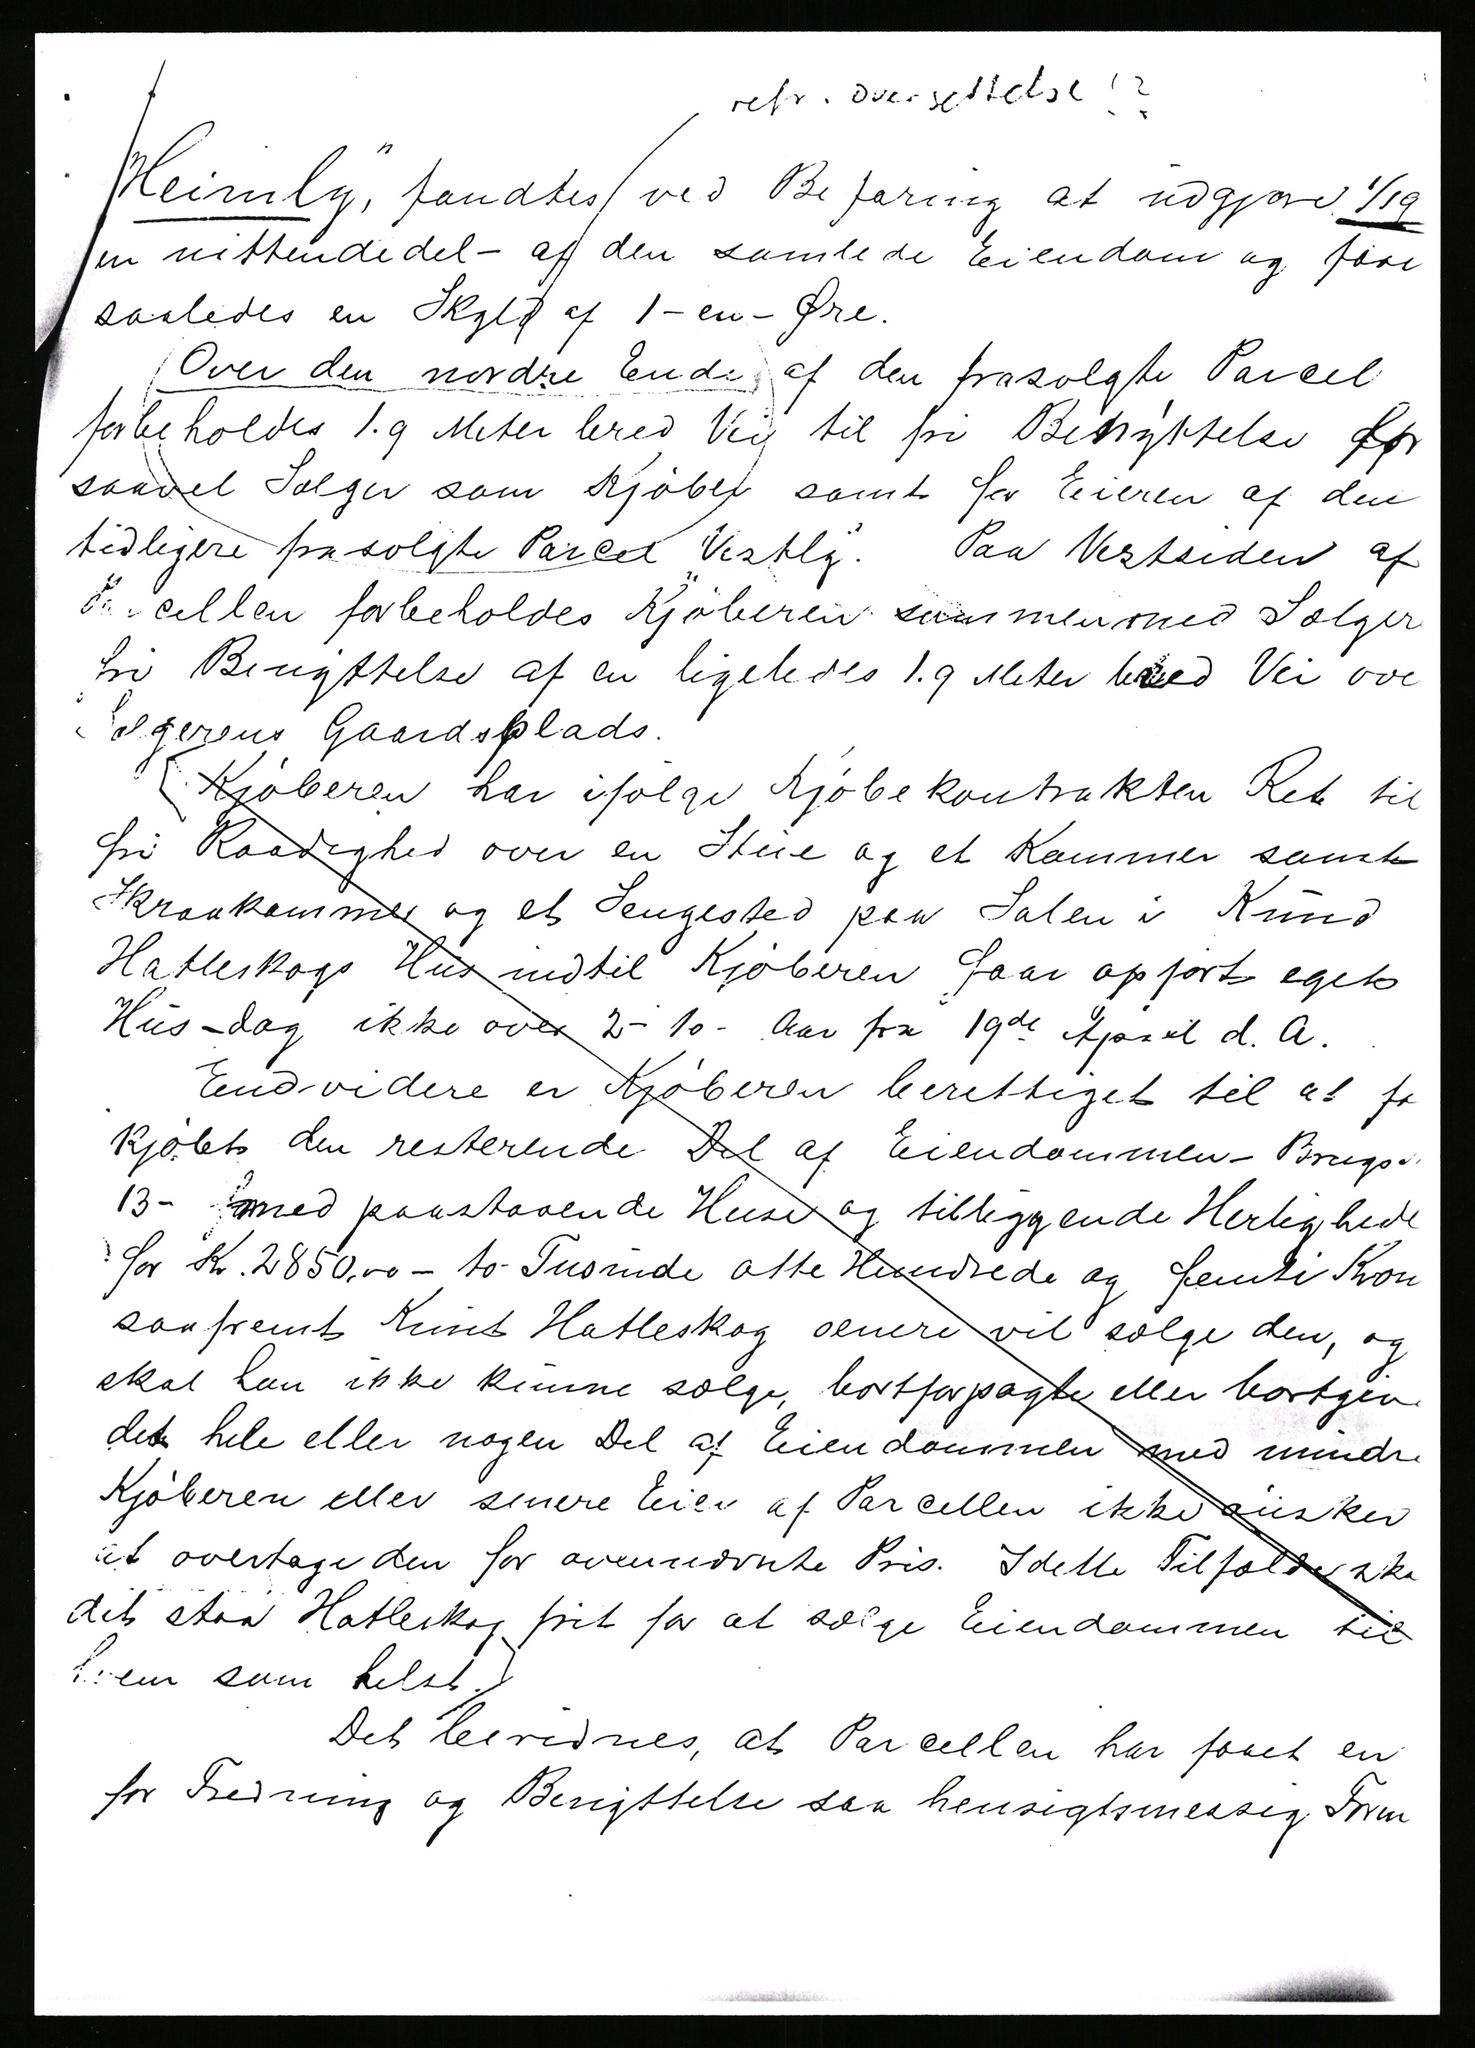 retr. oversettelse !?
"Heimly", fandtes ved Befaring at udgjøre 1/19
en nittendedel - af den samlede Eiendom og faar
saaledes en Skyld af 1 - en - Øre.
Over den nordre Ende af den frasolgte Parcel
forbeholdes 1.9 Meter bred Vei til fri Benyttelse for
saavel Sælger som Kjøber samt for Eieren af den
tidligere frasolgte Parcel "Vestly". Paa Vestsiden af
Parcellen forbeholdes Kjøberen sammen med Sælger
fri Benyttelse af en ligeledes 1.9 Meter bred Vei ove
Sælgerens Gaardsplads.
(Kjøberen har ifølge Kjøbekontrakten Ret til
fri Raadighed over en Stue og et Kammer samt
Skraakammer og et Sengested paa Salen i Knud
Hatleskogs Hus indtil Kjøberen faar opført eget
Hus - dog ikke over 2 - to - Aar fra 19de April d. A.
Endvidere er Kjøberen berettiget til at fa
kjøbt den resterende Del af Eiendommen - Brugs
13 - med paastaaende Huse og tilliggende Herlighede
for Kr. 2850,00 - to Tusinde otte Hundrede og femti Kron
saafremt Knut Hatleskog senere vil sælge den, og
skal han ikke kunne sælge, bortforpagte eller bortgive
det hele eller nogen Del af Eiendommen med mindre
Kjøberen eller senere Eier af Parcellen ikke ønsker
at overtage den for ovennævnte Pris. I dette Tilfælde ska
det staa Hatleskog frit for at sælge Eiendommen til
hvem som helst.)
Det bevidnes, at Parcellen har faaet en
for Fredning og Benyttelse saa hensigtsmessig Form